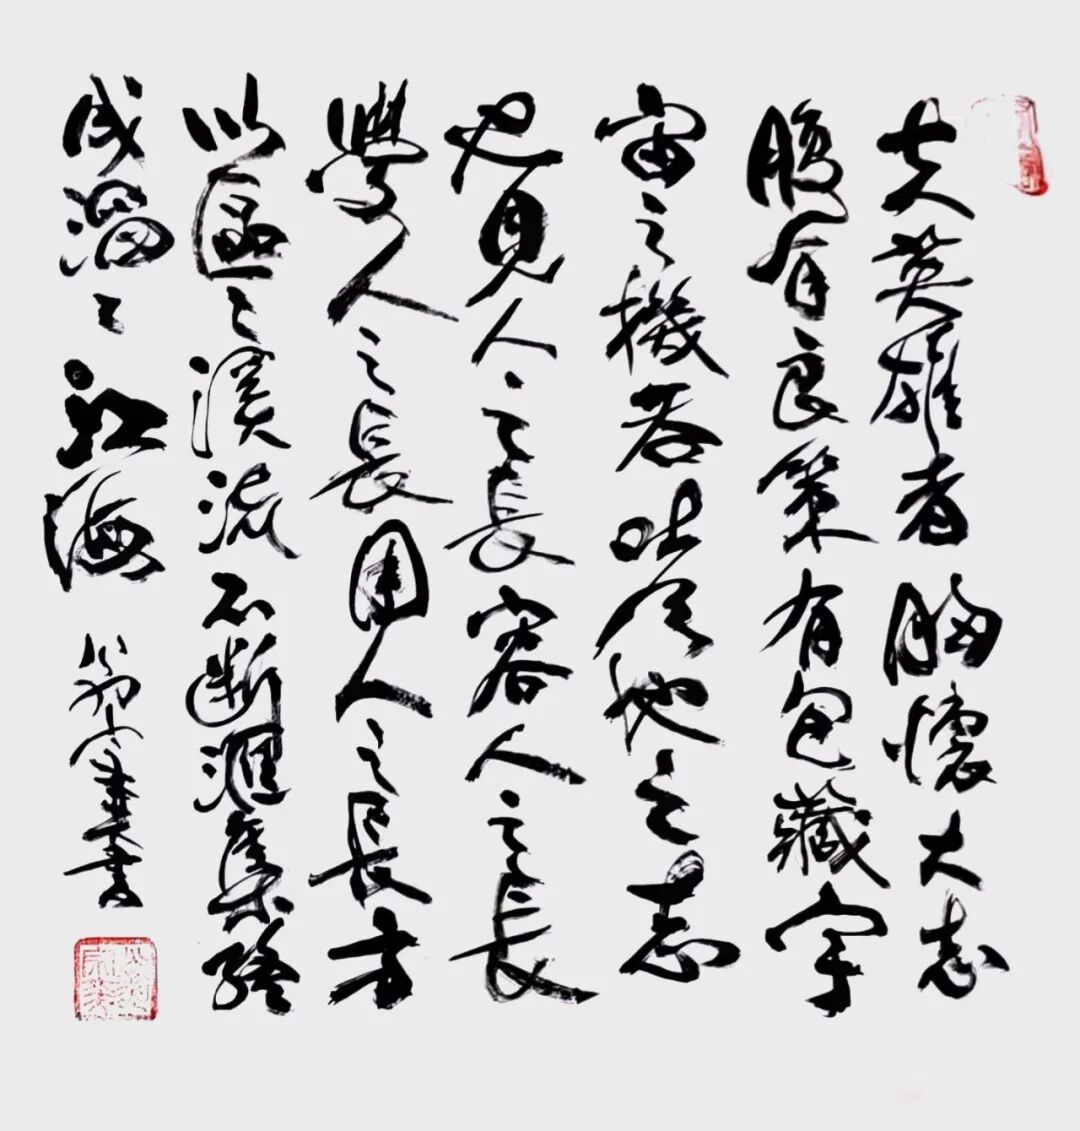 夫英雄者胸懷大志
腹有良策有包藏宇
宙之機吞吐天地之志
也見人之長容人之長
學人之長用人之長方
以區々溪流不斷匯集終
成滔々江海
書